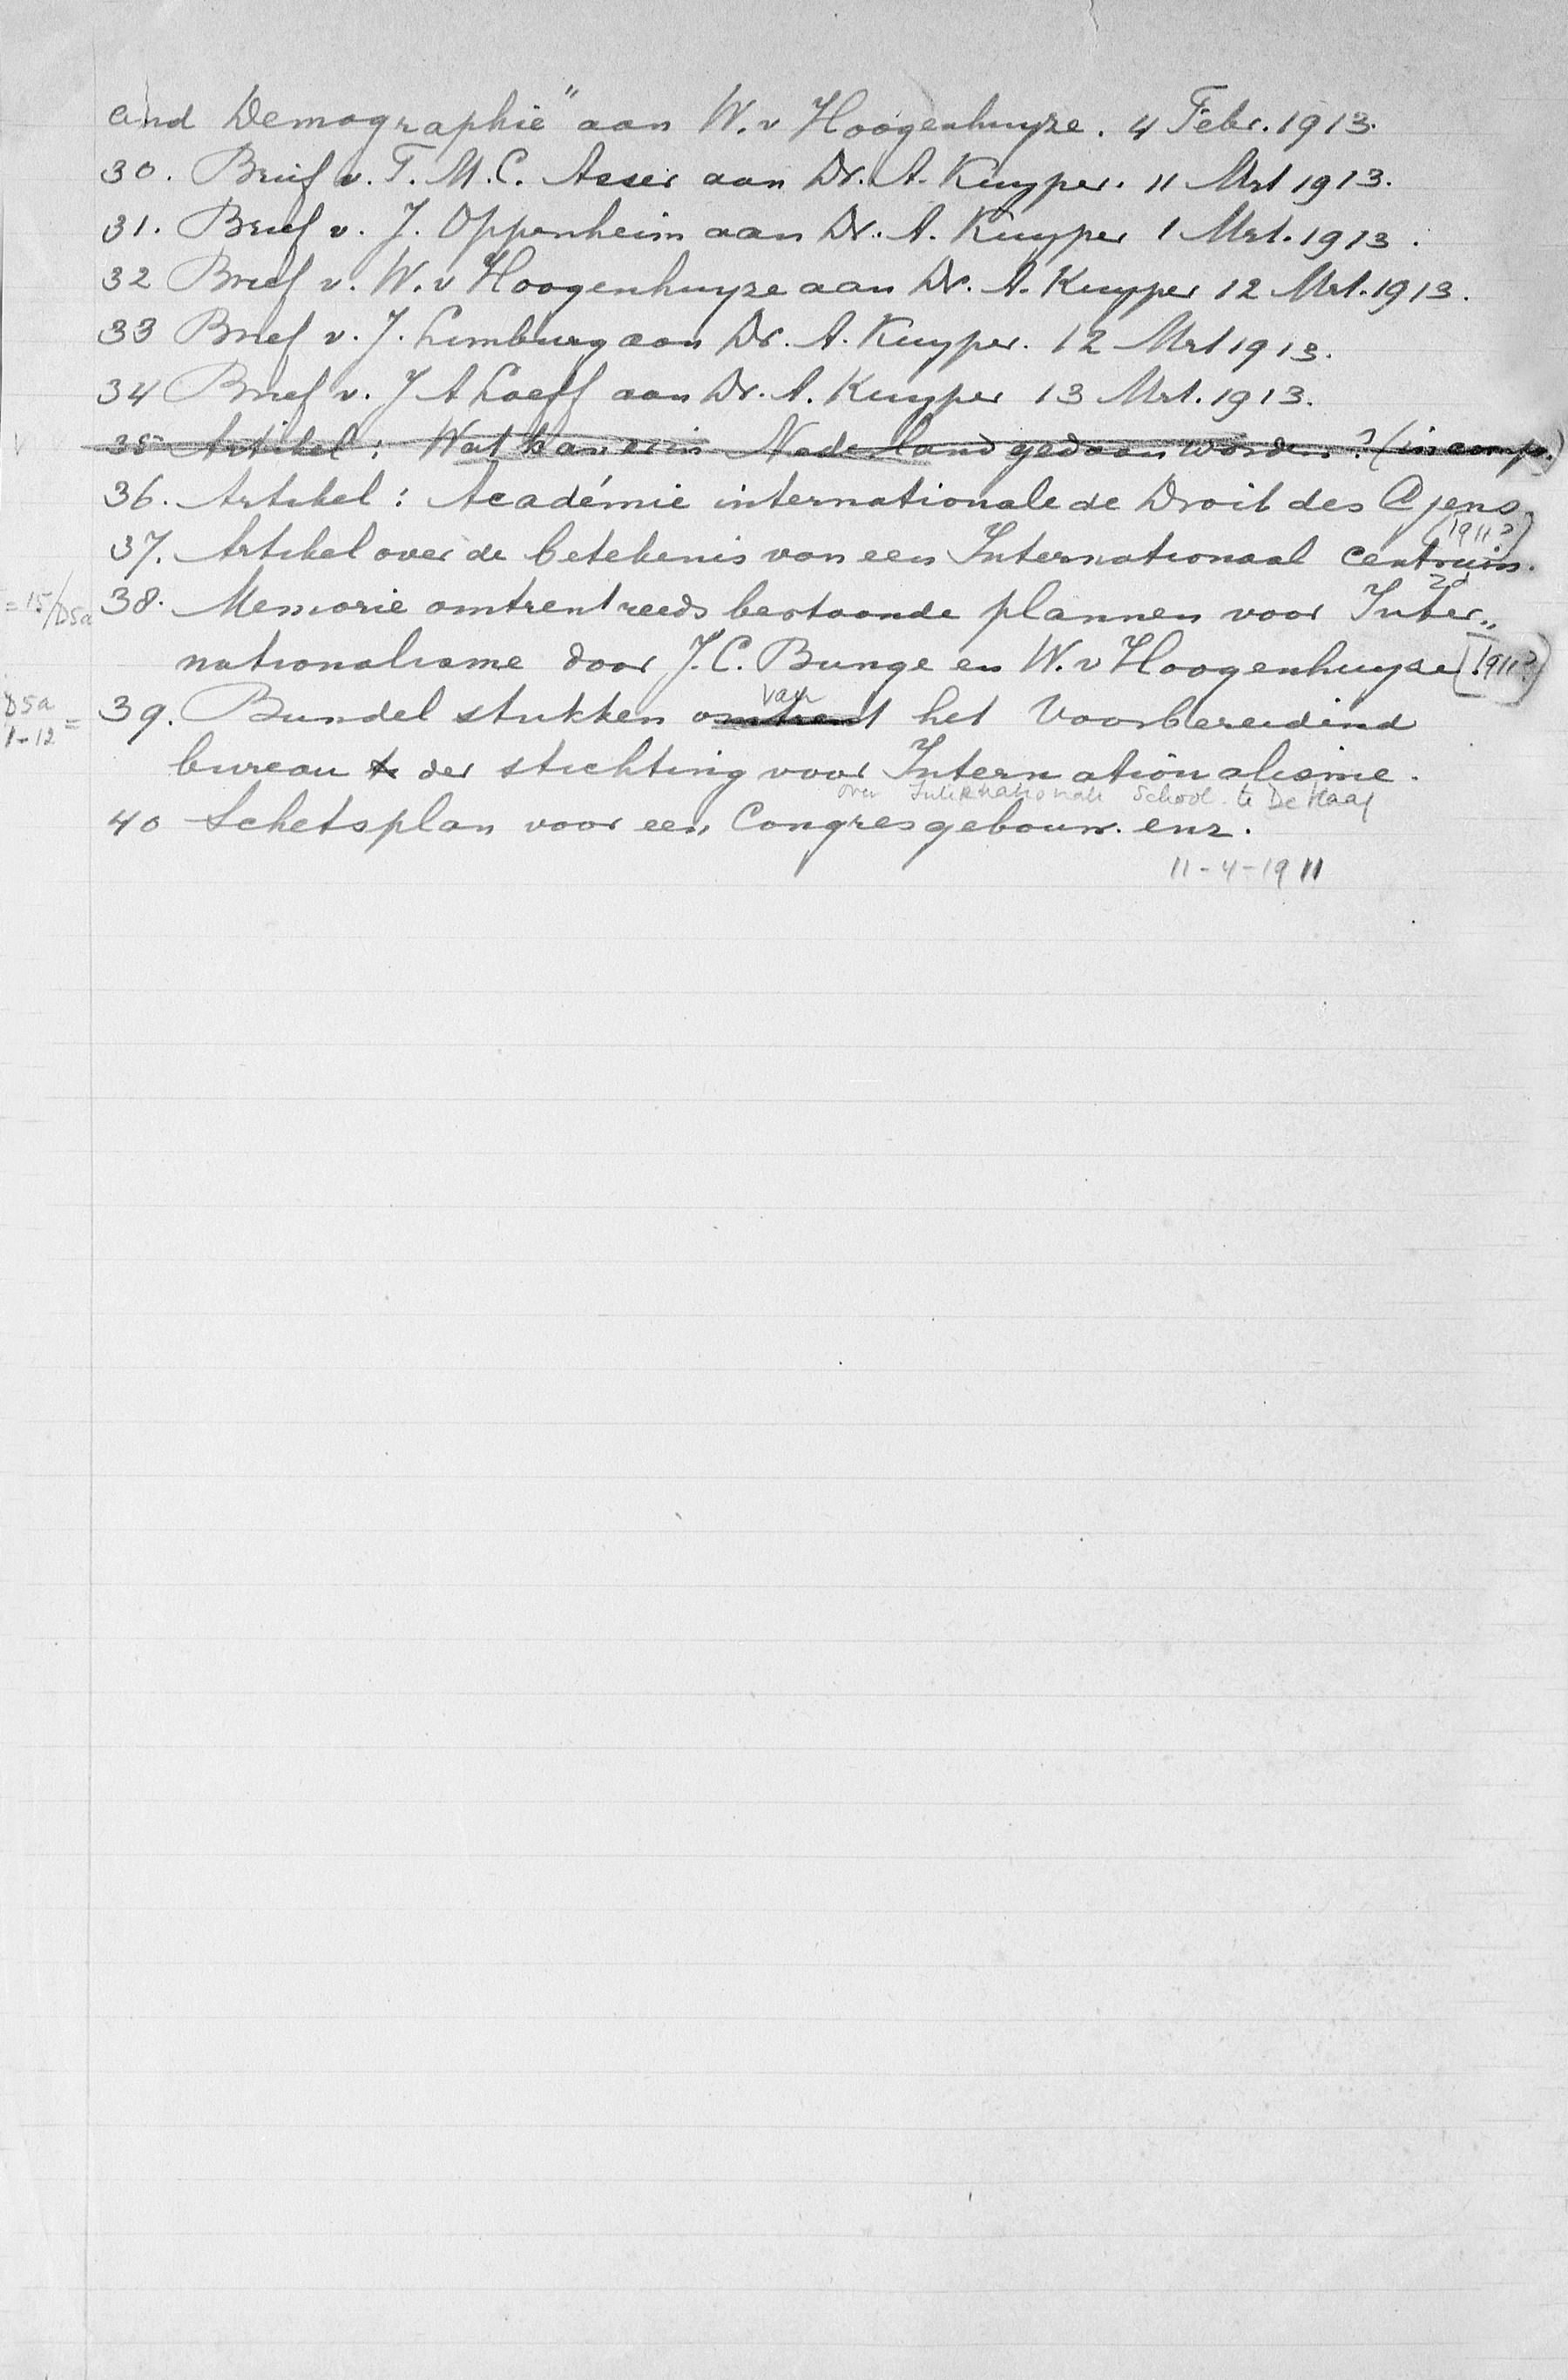 and Demographie" aan W. v Hoogenhuyze. 4 Febr. 1913.
30. Brief v. T. M. C. Asser aan Dr. A. Kuyper. 11 Mrt 1913.
31. Brief v. J. Oppenheim aan Dr. A. Kuyper 1 Mrt. 1913.
32 Brief v. W. v Hoogenhuyze aan Dr. A. Kuyper 12 Mrt. 1913.
33 Brief v. J. Limburg aan Dr. A. Kuyper. 12 Mrt 1913.
34 Brief v. J A Loeff aan Dr. A. Kuyper 13 Mrt. 1913.
V 35 Artikel: Wat kan er in Nederland gedaan worden? (incomp.)
36. Artikel: Académie internationale de Droit des Gens
(1911?)
37. Artikel over de betekenis van een Internationaal centrum.
zd
= 15/D5a 38. Memorie omtrent reeds bestaande plannen voor Inter„
nationalisme door J. C. Bunge en W. v Hoogenhuyze [1911?]
van
D5a 1-12 = 39. Bundel stukken omtrent het Voorbereidend
bureau der stichting voor Internationalisme.
over Internationale School te De Haag
40 Schetsplan voor een Congresgebouw. enz.
11-4-1911